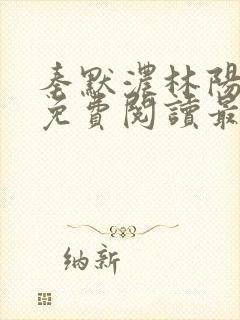 秦默濃林陽
免費閱讀最
納新